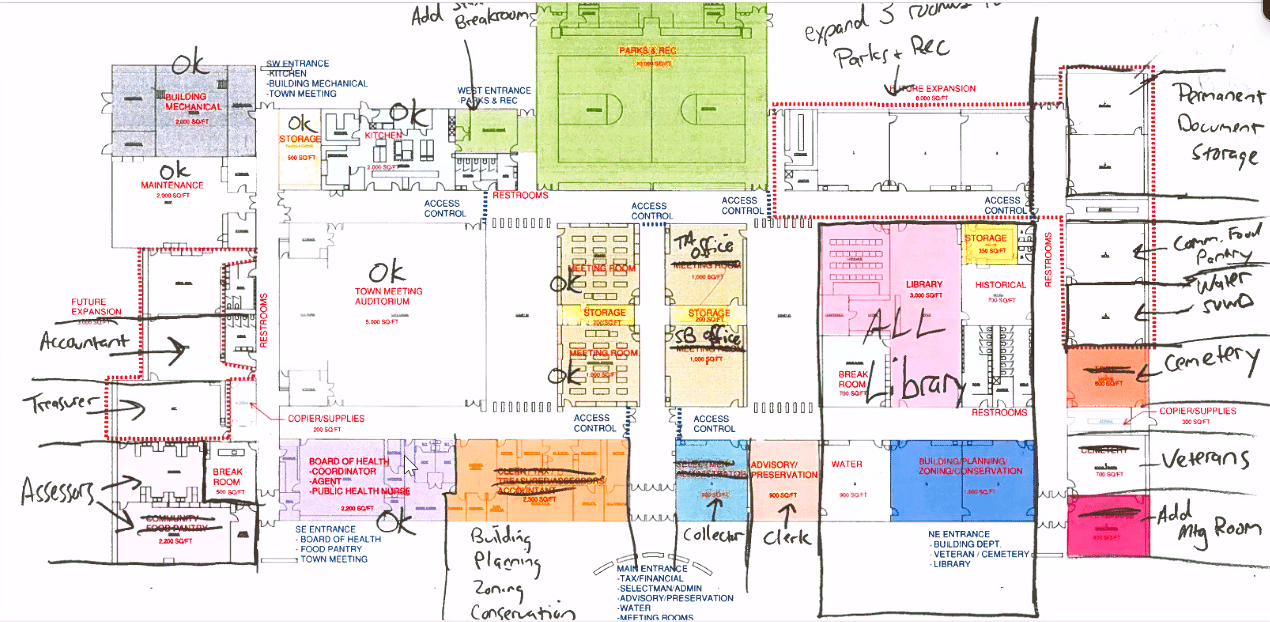 Add
Breakroom
expand 3 rooms to
Parks + Rec
PARKS & REC
10,000 SQ/FT
OK
BUILDING
MECHANICAL
2,000 SQ/FT
SW ENTRANCE
-KITCHEN
-BUILDING MECHANICAL
-TOWN MEETING
WEST ENTRANCE
PARKS & REC
FUTURE EXPANSION
6,000 SQ/FT
Permanent
Document
Storage
OK
STORAGE
500 SQ/FT
OK
KITCHEN
2,000 SQ/FT
OK
MAINTENANCE
2,000 SQ/FT
RESTROOMS
ACCESS
CONTROL
ACCESS
CONTROL
ACCESS
CONTROL
ACCESS
CONTROL
OK
TOWN MEETING
AUDITORIUM
5,000 SQ/FT
MEETING ROOM
OK
STORAGE
200 SQ/FT
MEETING ROOM
1,000 SQ/FT
OK
TA office
MEETING ROOM
1,000 SQ/FT
STORAGE
200 SQ/FT
SB office
MEETING ROOM
1,000 SQ/FT
LIBRARY
3,000 SQ/FT
ALL
Library
STORAGE
350 SQ/FT
HISTORICAL
700 SQ/FT
BREAK
ROOM
700 SQ/FT
RESTROOMS
RESTROOMS
Comm. Food
Pantry
Water
SWWD
Cemetery
COPIER/SUPPLIES
300 SQ/FT
CEMETERY
700 SQ/FT
Veterans
Add
Mtg Room
FUTURE
EXPANSION
RESTROOMS
Accountant
Treasurer
COPIER/SUPPLIES
200 SQ/FT
Assessors
COMMUNITY
FOOD PANTRY
2,200 SQ/FT
BREAK
ROOM
500 SQ/FT
BOARD OF HEALTH
-COORDINATOR
-AGENT
-PUBLIC HEALTH NURSE
2,200 SQ/FT
OK
CLERK / TAX
TREASURER/ASSESSORS
ACCOUNTANT
2,500 SQ/FT
ACCESS
CONTROL
ACCESS
CONTROL
900 SQ/FT
ADVISORY/
PRESERVATION
900 SQ/FT
WATER
900 SQ/FT
BUILDING/PLANNING/
ZONING/CONSERVATION
SE ENTRANCE
- BOARD OF HEALTH
- FOOD PANTRY
- TOWN MEETING
Building
Planning
Zoning
Conservation
Collector
Clerk
MAIN ENTRANCE
- TAX/FINANCIAL
- SELECTMAN/ADMIN
- ADVISORY/PRESERVATION
- WATER
- MEETING ROOMS
NE ENTRANCE
- BUILDING DEPT.
- VETERAN / CEMETERY
- LIBRARY